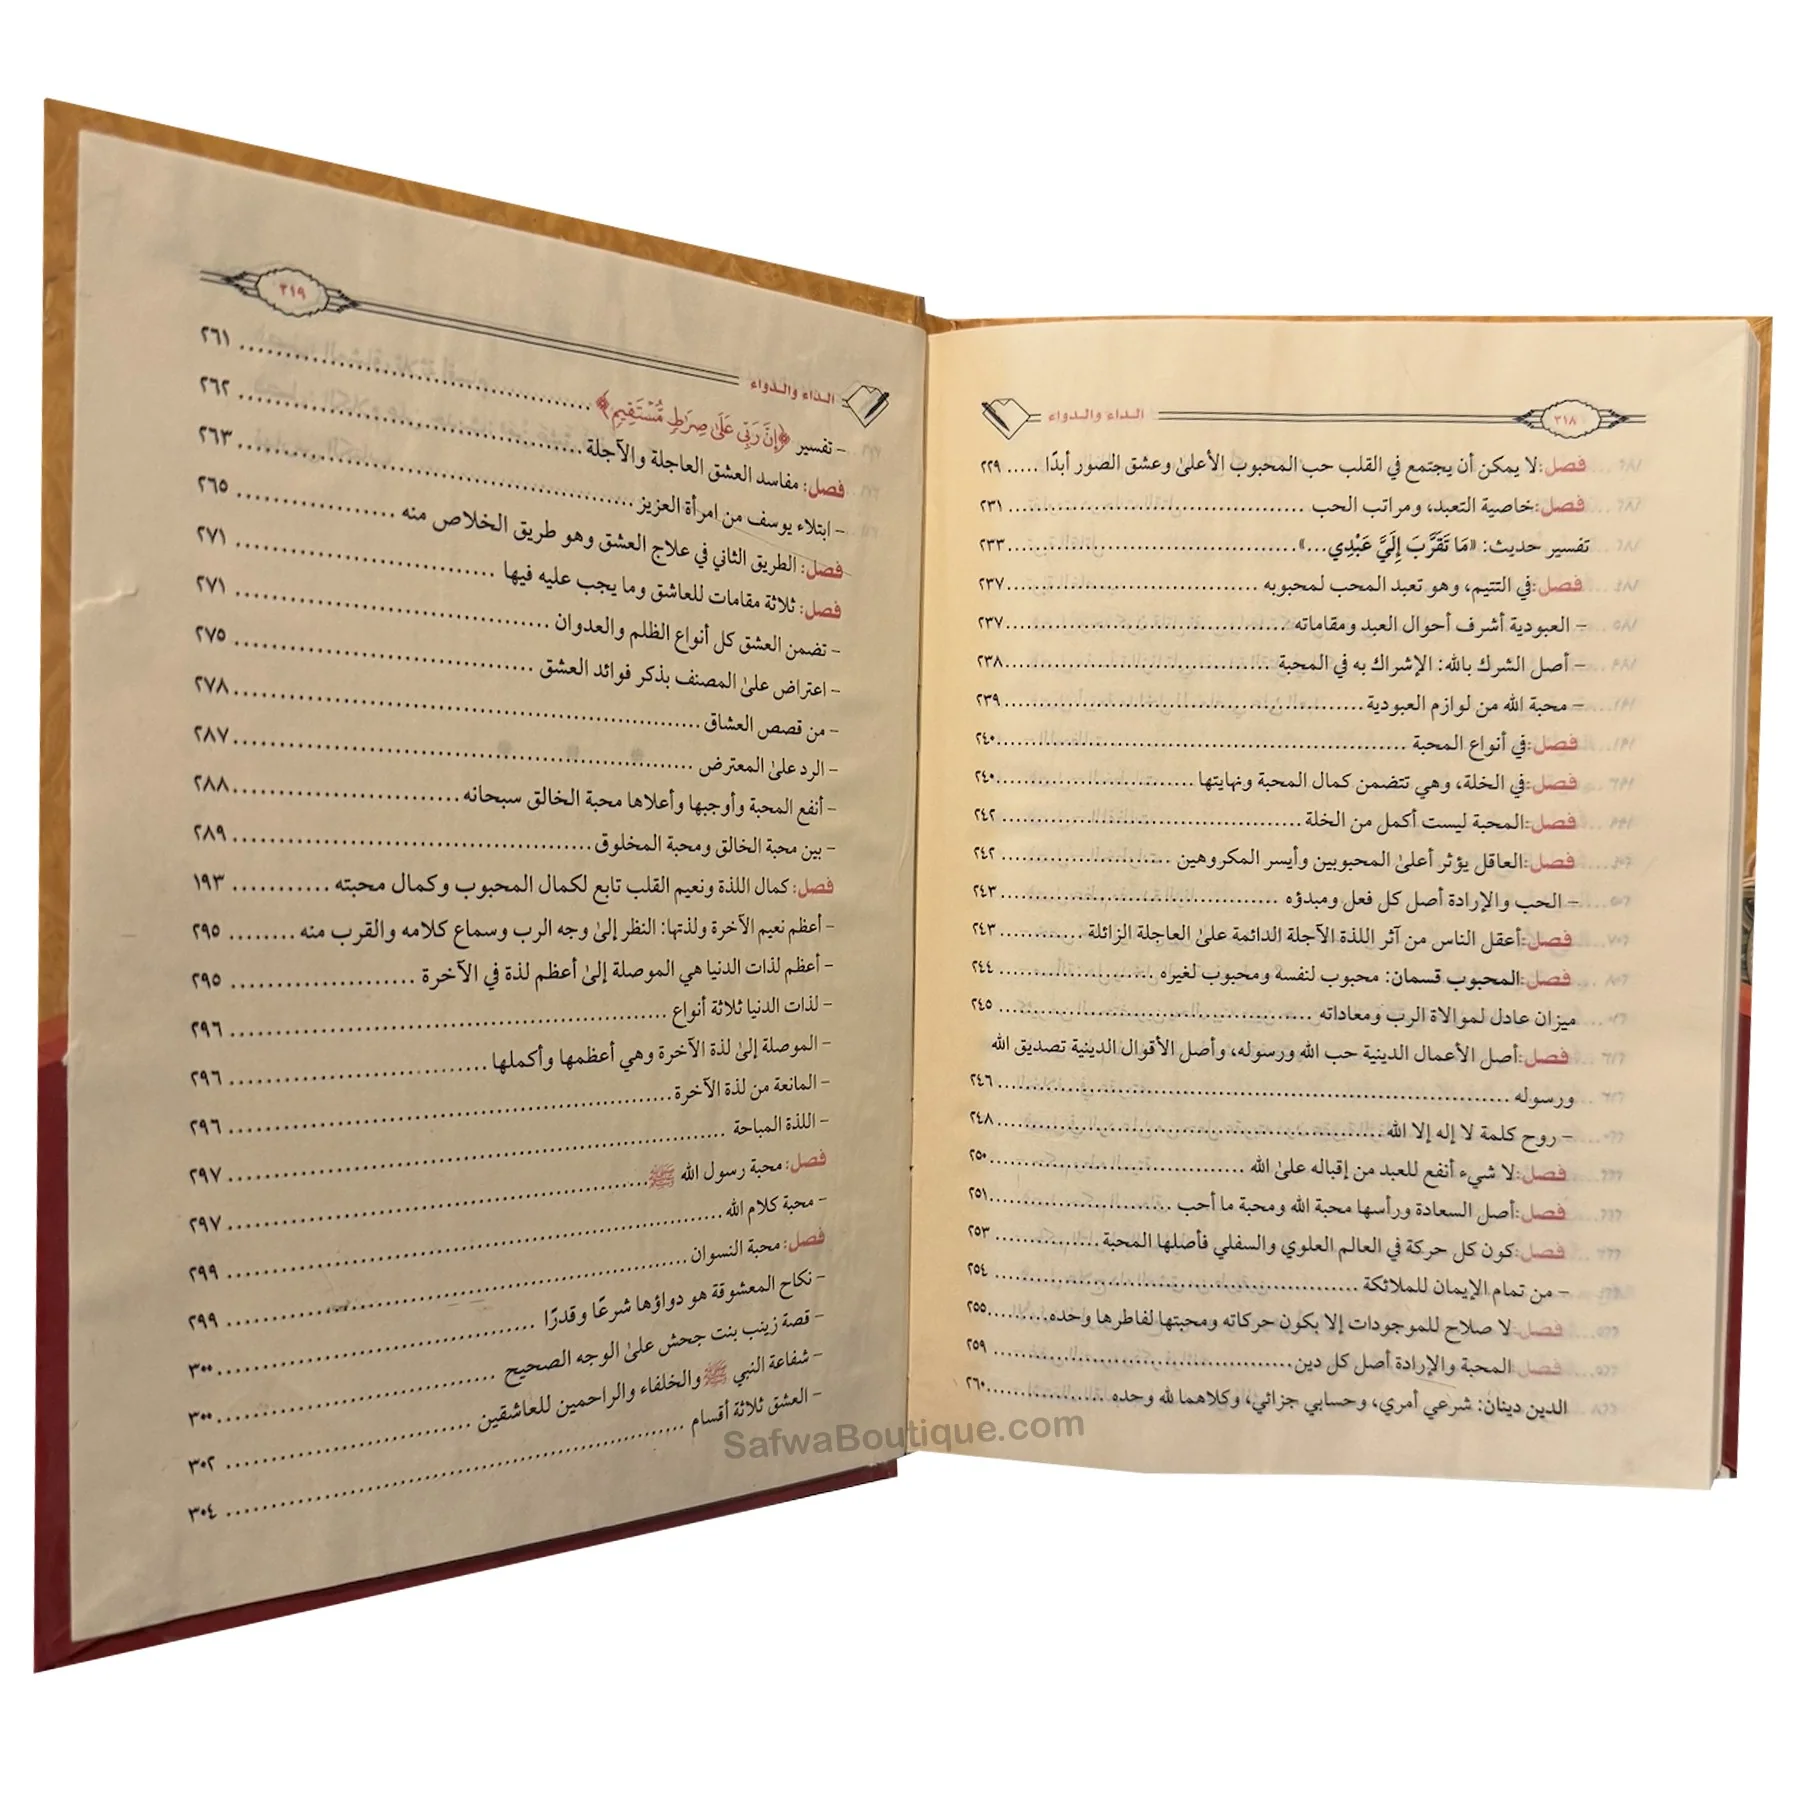 ٣١٨ الداء والدواء
فصل: لا يمكن أن يجتمع في القلب حب المحبوب الأعلىٰ وعشق الصور أبدًا ..... ٢٢٩
فصل: خاصية التعبد، ومراتب الحب ..... ٢٣١
تفسير حديث: «مَا تَقَرَّبَ إِلَيَّ عَبْدِي...» ..... ٢٣٣
فصل: في التتيم، وهو تعبد المحب لمحبوبه ..... ٢٣٧
– العبودية أشرف أحوال العبد ومقاماته ..... ٢٣٧
– أصل الشرك بالله: الإشراك به في المحبة ..... ٢٣٨
– محبة الله من لوازم العبودية ..... ٢٣٩
فصل: في أنواع المحبة ..... ٢٤٠
فصل: في الخلة، وهي تتضمن كمال المحبة ونهايتها ..... ٢٤٠
فصل: المحبة ليست أكمل من الخلة ..... ٢٤٢
فصل: العاقل يؤثر أعلىٰ المحبوبين وأيسر المكروهين ..... ٢٤٢
– الحب والإرادة أصل كل فعل ومبدؤه ..... ٢٤٣
فصل: أعقل الناس من آثر اللذة الآجلة الدائمة علىٰ العاجلة الزائلة ..... ٢٤٣
فصل: المحبوب قسمان: محبوب لنفسه ومحبوب لغيره ..... ٢٤٤
ميزان عادل لموالاة الرب ومعاداته ..... ٢٤٥
فصل: أصل الأعمال الدينية حب الله ورسوله، وأصل الأقوال الدينية تصديق الله
ورسوله ..... ٢٤٦
– روح كلمة لا إله إلا الله ..... ٢٤٨
فصل: لا شيء أنفع للعبد من إقباله علىٰ الله ..... ٢٥٠
فصل: أصل السعادة ورأسها محبة الله ومحبة ما أحب ..... ٢٥١
فصل: كون كل حركة في العالم العلوي والسفلي فأصلها المحبة ..... ٢٥٣
– من تمام الإيمان للملائكة ..... ٢٥٤
فصل: لا صلاح للموجودات إلا بكون حركاته ومحبتها لفاطرها وحده ..... ٢٥٥
فصل: المحبة والإرادة أصل كل دين ..... ٢٥٩
الدين دينان: شرعي أمري، وحسابي جزائي، وكلاهما لله وحده ..... ٢٦٠
الداء والدواء ٣١٩
– تفسير ﴿إِنَّ رَبِّي عَلَىٰ صِرَٰطٍ مُّسۡتَقِيمٍ﴾ ..... ٢٦١
فصل: مفاسد العشق العاجلة والآجلة ..... ٢٦٢
– ابتلاء يوسف من امرأة العزيز ..... ٢٦٣
فصل: الطريق الثاني في علاج العشق وهو طريق الخلاص منه ..... ٢٦٥
فصل: ثلاثة مقامات للعاشق وما يجب عليه فيها ..... ٢٧١
– تضمن العشق كل أنواع الظلم والعدوان ..... ٢٧١
– اعتراض علىٰ المصنف بذكر فوائد العشق ..... ٢٧٥
– من قصص العشاق ..... ٢٧٨
– الرد علىٰ المعترض ..... ٢٨٧
– أنفع المحبة وأوجبها وأعلاها محبة الخالق سبحانه ..... ٢٨٨
– بين محبة الخالق ومحبة المخلوق ..... ٢٨٩
فصل: كمال اللذة ونعيم القلب تابع لكمال المحبوب وكمال محبته ..... ١٩٣
– أعظم نعيم الآخرة ولذتها: النظر إلىٰ وجه الرب وسماع كلامه والقرب منه ..... ٢٩٥
– أعظم لذات الدنيا هي الموصلة إلىٰ أعظم لذة في الآخرة ..... ٢٩٥
– لذات الدنيا ثلاثة أنواع ..... ٢٩٦
– الموصلة إلىٰ لذة الآخرة وهي أعظمها وأكملها ..... ٢٩٦
– المانعة من لذة الآخرة ..... ٢٩٦
– اللذة المباحة ..... ٢٩٧
فصل: محبة رسول الله ﷺ ..... ٢٩٧
– محبة كلام الله ..... ٢٩٩
فصل: محبة النسوان ..... ٢٩٩
– نكاح المعشوقة هو دواؤها شرعًا وقدرًا ..... ٣٠٠
– قصة زينب بنت جحش علىٰ الوجه الصحيح ..... ٣٠٠
– شفاعة النبي ﷺ والخلفاء والراحمين للعاشقين ..... ٣٠٢
– العشق ثلاثة أقسام ..... ٣٠٤
SafwaBoutique.com